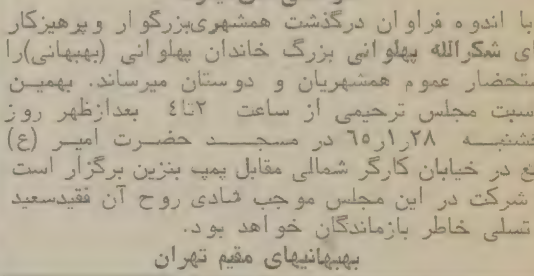 با اندوه فراوان درگذشت همشهری‌بزرگوار وپرهیزکار
ای شکرالله پهلوانی بزرگ خاندان پهلوانی (بهبهانی)را
ستحضار عموم همشهریان و دوستان میرساند. بهمین
سبت مجلس ترحیمی از ساعت ۲تا٤ بعدازظهر روز
شنبه ۲۸ر۱ر٦٥ در مسجد حضرت امیر (ع)
ع در خیابان کارگر شمالی مقابل پمپ بنزین برگزار است
شرکت در این مجلس موجب شادی روح آن فقیدسعید
تسلی خاطر بازماندگان خواهد بود.
بهبهانیهای مقیم تهران